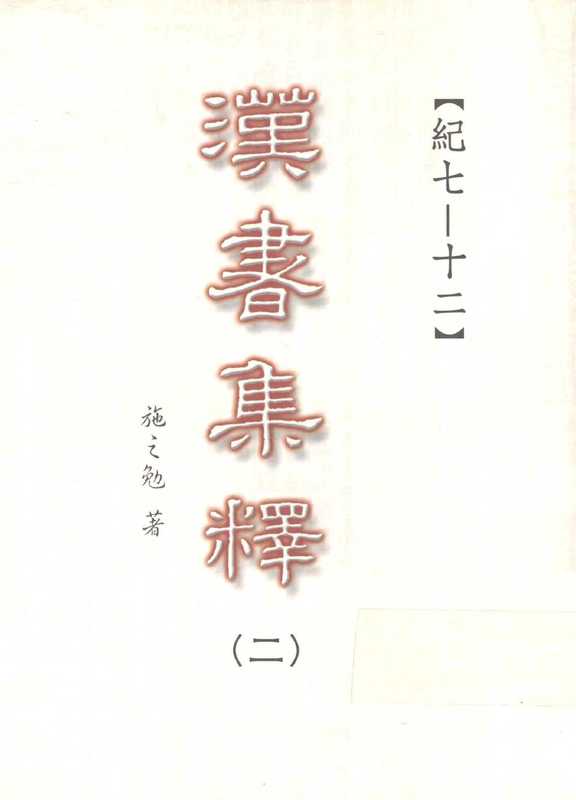 【紀七—十二】
漢書集釋
(二)
施之勉 著